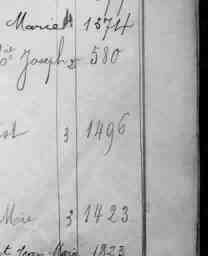 Marie 1574
Joseph 580
3 1496
Marie 3 1423
Jean Marie 1823